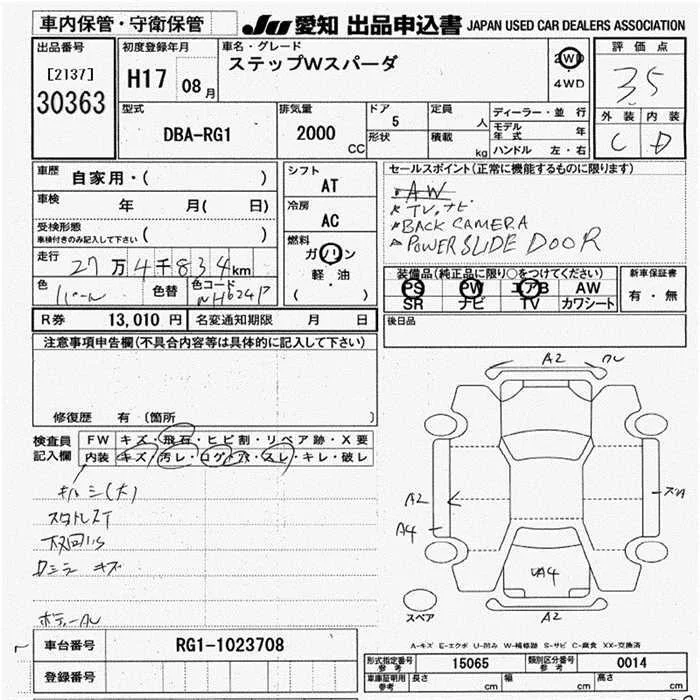 車内保管・守衛保管
JU 愛知 出品申込書 JAPAN USED CAR DEALERS ASSOCIATION
出品番号
[2137]
30363
初度登録年月
H17 08月
車名・グレード
ステップWスパーダ
2WD
4WD
評価点
3.5
外装 内装
C D
型式
DBA-RG1
排気量
2000 CC
ドア 5
形状
定員 人
積載 kg
ディーラー・並行
モデル年式 年
ハンドル 左・右
車歴 自家用・( )
車検 年 月( 日)
受検形態
車検付きのみ記入して下さい ( )
走行 27万4千834km
色 パール 色替 色コード NH624P
シフト
AT
冷房
AC
燃料
ガソリン
軽・油
( )
セールスポイント(正常に機能するものに限ります)
AW
TV.ナビ
BACK CAMERA
POWER SLIDE DOOR
装備品(純正品に限り○をつけてください)
PS PW エアB AW
SR ナビ TV カワシート
新車保証書
有・無
R券 13,010円 名変通知期限 月 日
後日品
注意事項申告欄(不具合内容等は具体的に記入して下さい)
修復歴 有 (箇所 )
検査員記入欄
FW キズ・飛石・ヒビ割・リペア跡・X要
内装 キズ・汚レ・コゲ・穴・スレ・キレ・破レ
ボディーAU
A2
A2
A4
UA4
A2
スペア
A-キズ E-エクボ U-凹み W-補修跡 S-サビ C-腐食 XX-交換済
車台番号 RG1-1023708
登録番号
形式指定番号 参考 15065 類別区分番号 参考 0014
車庫証明用 参考 長さ cm 幅 cm 高さ cm